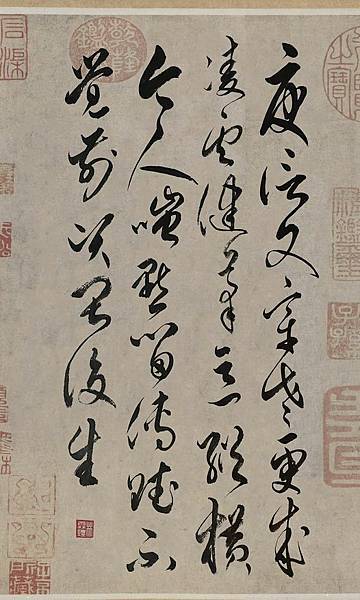 庾信文章老更成
凌雲健筆意縱橫
今人嗤點留傳賦不
覺前賢畏後生